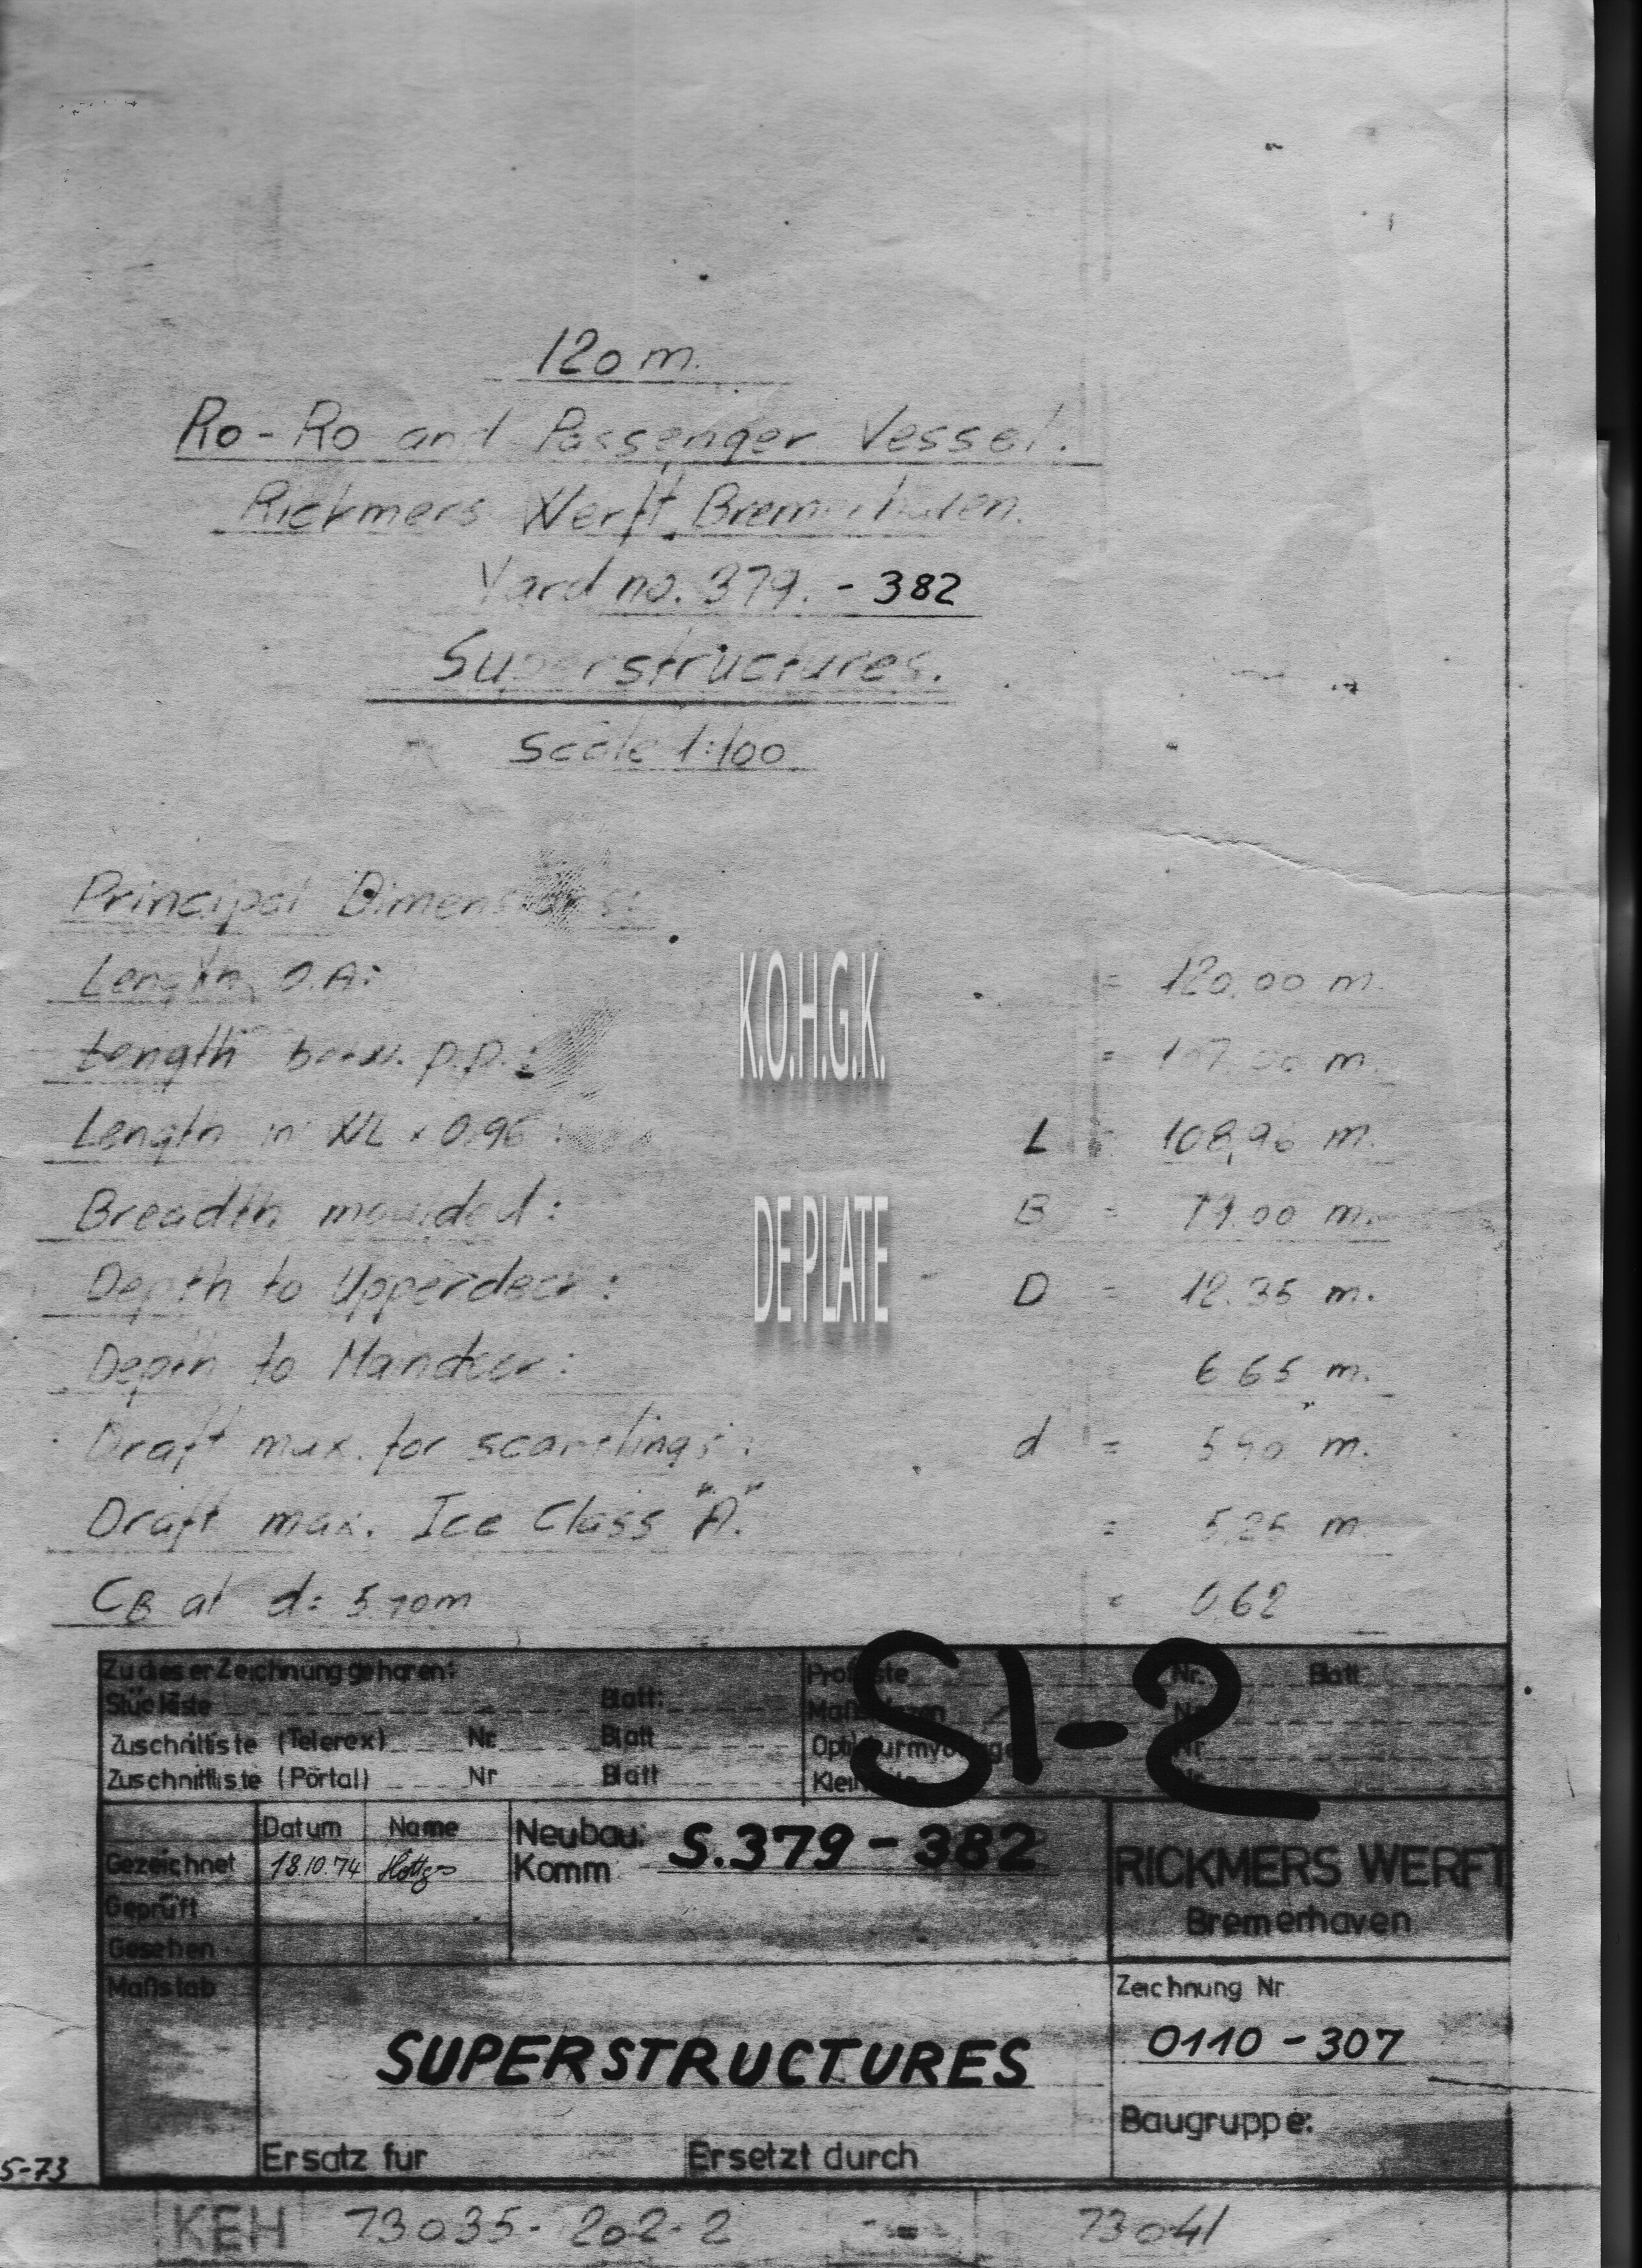 120 m.
Ro-Ro and Passenger Vessel.
Rickmers Werft, Bremerhaven.
Yard no. 379. - 382
Superstructures.
Scale 1:100
Principal Dimensions:
Length O.A: = 120.00 m.
Length betw. p.p.: = 107.00 m.
Length in WL x 0.96: L = 108,96 m.
Breadth moulded: B = m.
Depth to Upperdeck: D = 12.35 m.
Depth to Maindeck: 6.65 m.
Draft max. for scantlings: d = m.
Draft max. Ice Class "A". = 5.25 m.
CB at d: = 0.62
K.O.H.G.K.
DE PLATE
Zu dieser Zeichnung gehören:
Stückliste Blatt:
Zuschnittliste (Telerex) Nr Blatt
Zuschnittliste (Portal) Nr Blatt
Nr. Blatt
Nr
Nr
Nr
S1-2
Datum Name
Gezeichnet 18.10.74
Geprüft
Gesehen
Maßstab
Neubau:
Komm S.379 - 382
RICKMERS WERFT
Bremerhaven
SUPERSTRUCTURES
Zeichnung Nr
0110 - 307
Baugruppe:
Ersatz für Ersetzt durch
5-73
KEH 73035-202-2 73041